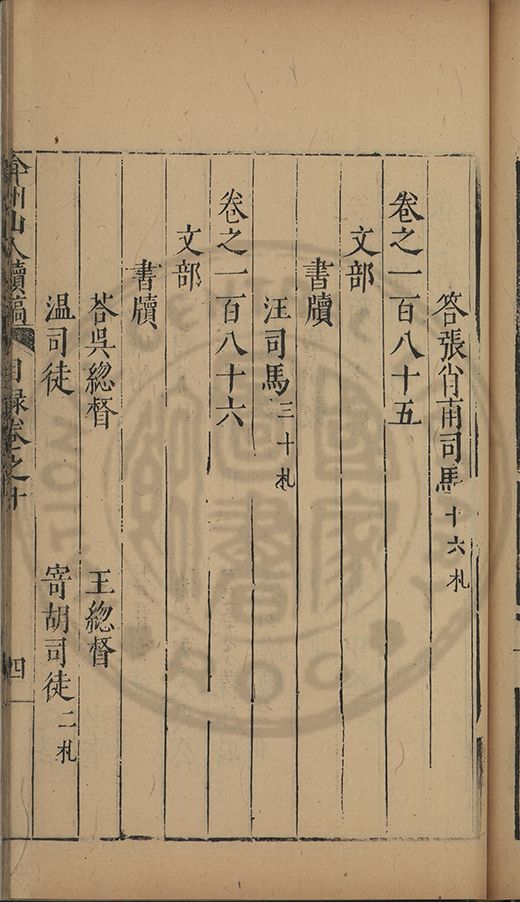 答張肖甫司馬十六札
卷之一百八十五
文部
書牘
汪司馬三十札
卷之一百八十六
文部
書牘
荅吳總督 王總督
温司徒 寄胡司徒二札
弇州山人續稿 目録卷之十 四